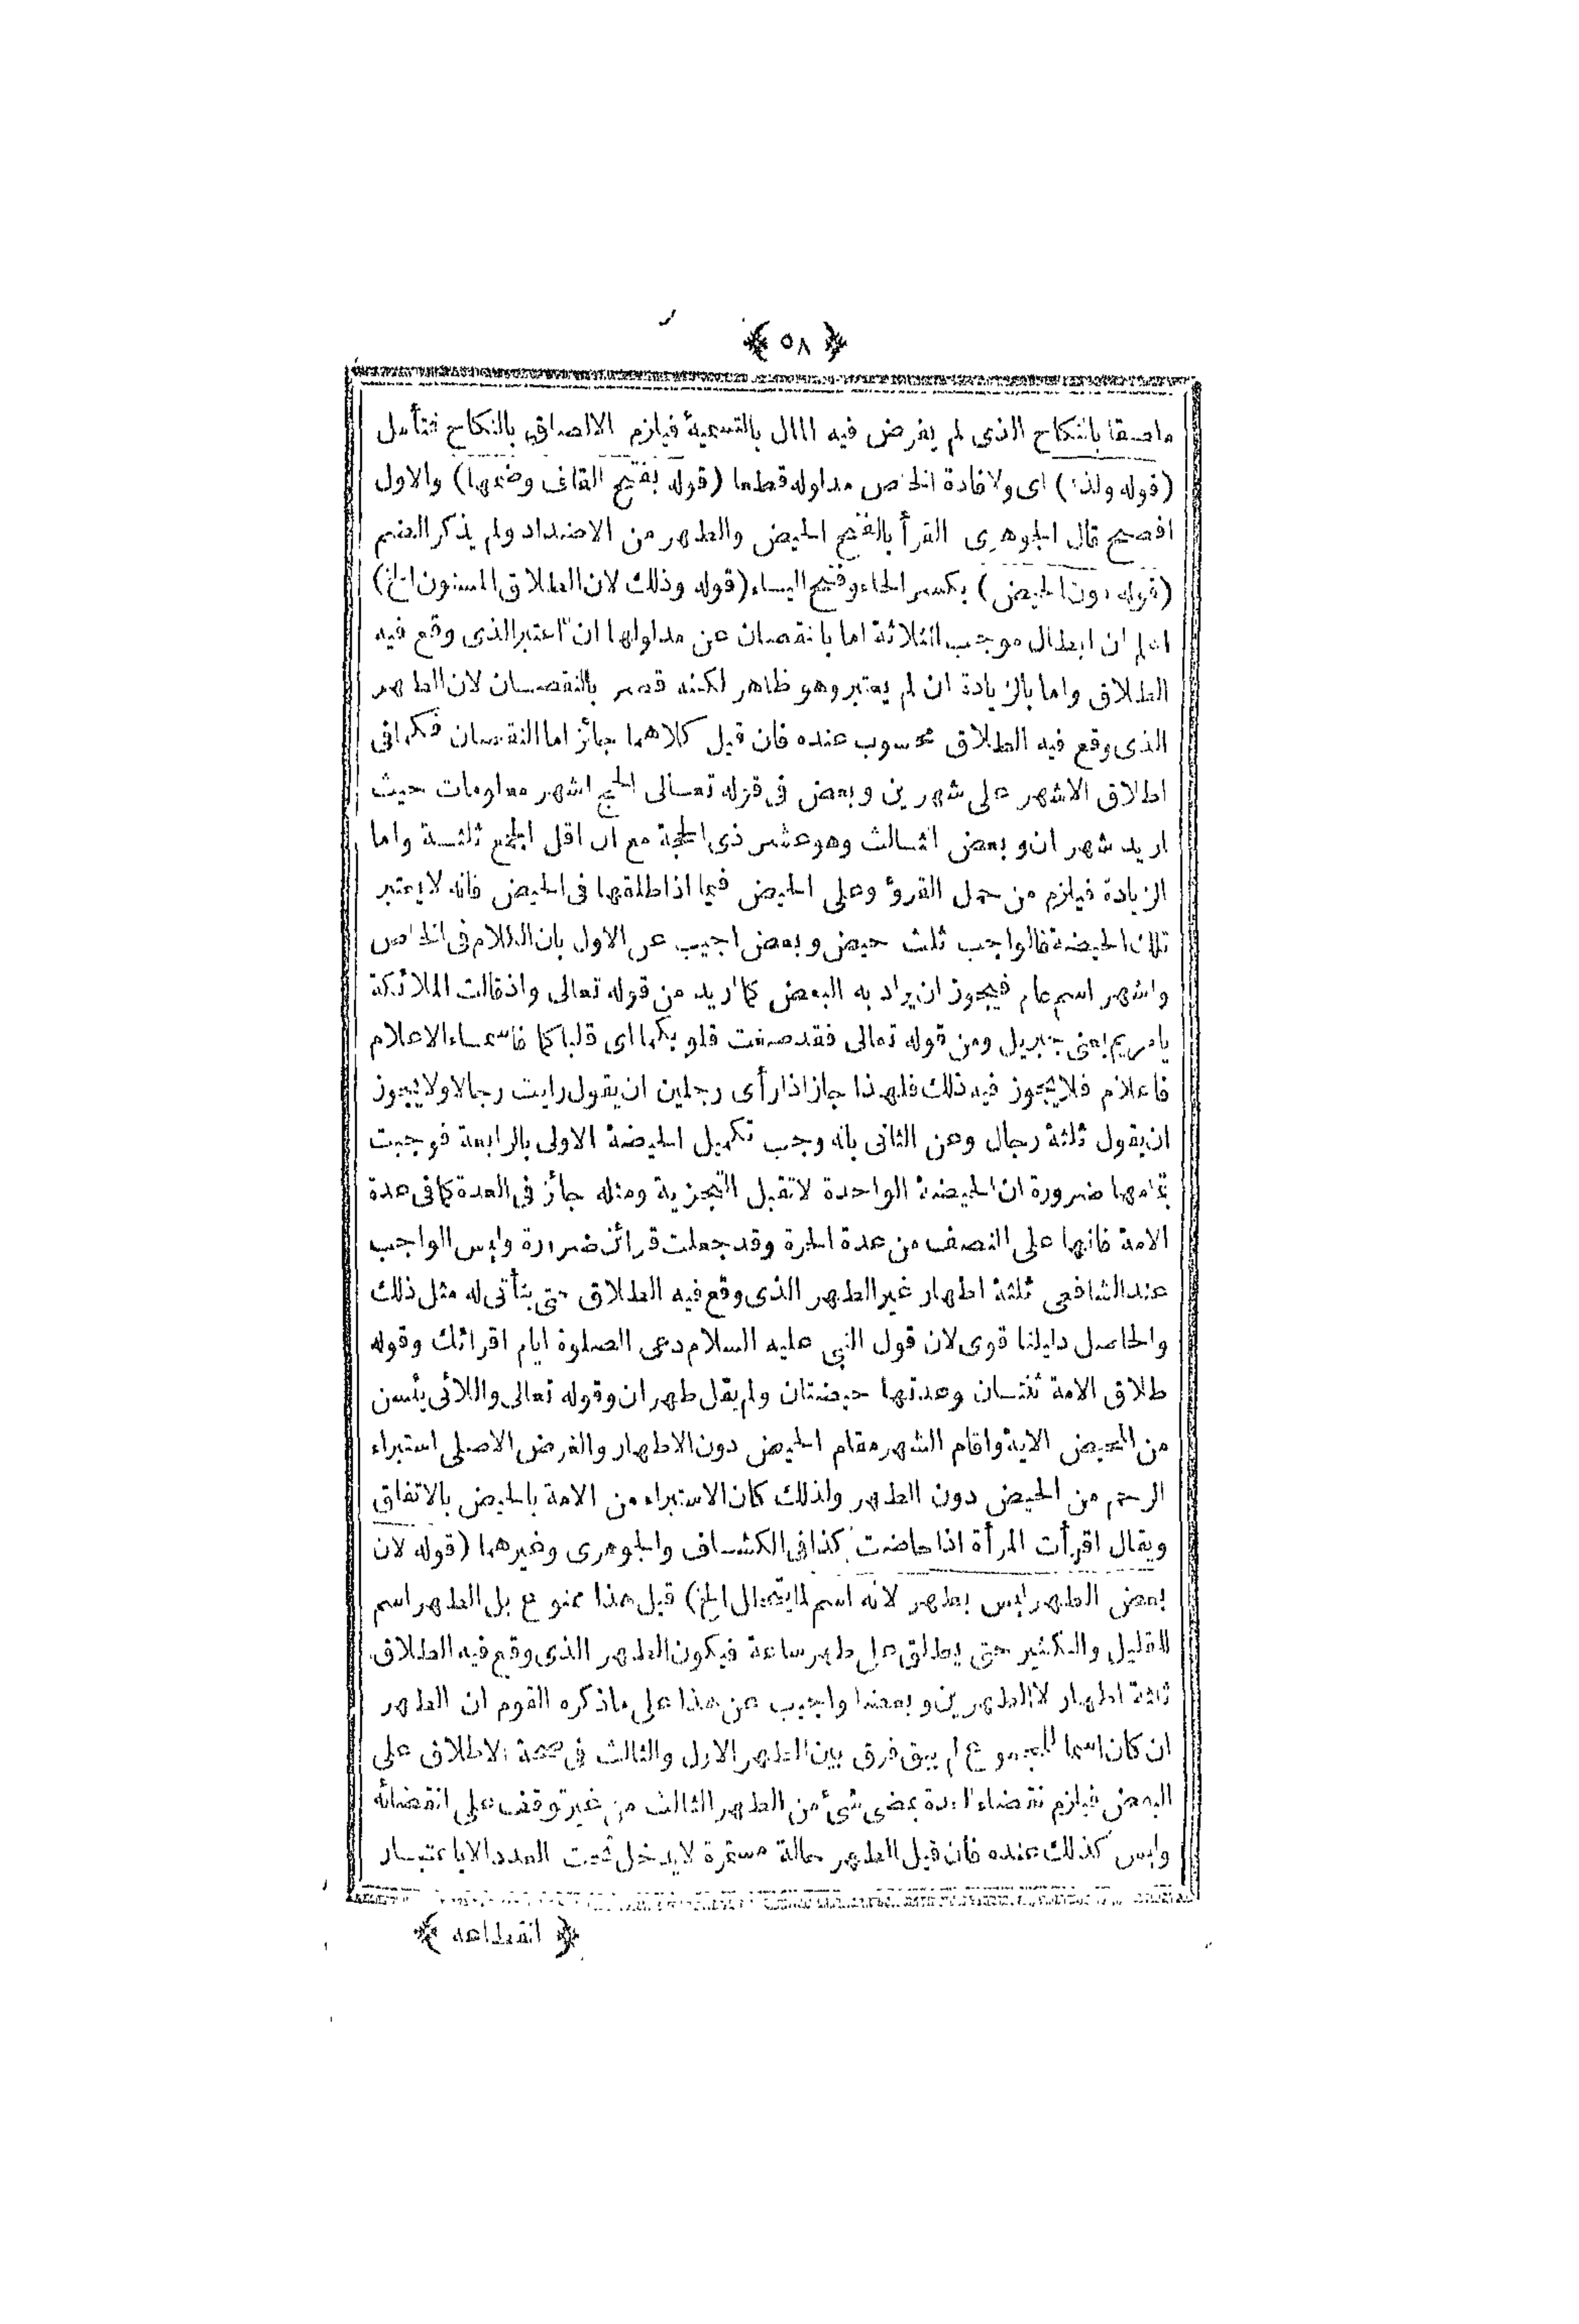 ﴿ ٥٨ ﴾
ملصقا بالنكاح الذى لم يفرض فيه المال بالتسمية فيلزم الالصاق بالنكاح فتأمل
(قوله ولذا) اى ولافادة الخاص مدلوله قطعا (قوله بفتح القاف وضمها) والاول
افصح قال الجوهرى القرأ بالفتح الحيض والطهر من الاضداد ولم يذكر الضم
(قوله دون الحيض) بكسر الحاء وفتح الياء (قوله وذلك لان الطلاق المسنون الخ)
اعلم ان ابطال موجب الثلاثة اما بالنقصان عن مدلولها ان اعتبر الذى وقع فيه
الطلاق واما بالزيادة ان لم يعتبر وهو ظاهر لكنه قصر بالنقصان لان الطهر
الذى وقع فيه الطلاق محسوب عنده فان قيل كلاهما جائز اما النقصان فكما فى
اطلاق الاشهر على شهرين وبعض فى قوله تعالى الحج اشهر معلومات حيث
اريد شهران وبعض الثالث وهو عشر ذى الحجة مع ان اقل الجمع ثلثة واما
الزيادة فيلزم من حمل القروؤ وعلى الحيض فيما اذا طلقها فى الحيض فانه لا يعتبر
تلك الحيضة فالواجب ثلث حيض وبعض اجيب عن الاول بان الكلام فى الخاص
واشهر اسم عام فيجوز ان يراد به البعض كما اريد من قوله تعالى واذ قالت الملائكة
يا مريم بمعنى جبريل ومن قوله تعالى فقد صغت قلوبكما اى قلبا كما فاسماء الاعلام
فاعلام فلا يجوز فيه ذلك فلهذا جاز اذا رأى رجلين ان يقول رايت رجالا ولا يجوز
ان يقول ثلثة رجال وعن الثانى بانه وجب تكميل الحيضة الاولى بالرابعة فوجبت
بتمامها ضرورة ان الحيضة الواحدة لا تقبل التجزية ومثله جائز فى العدة كما فى عدة
الامة فانها على النصف من عدة الحرة وقد جعلت قرائن ضرورة وليس الواجب
عند الشافعى ثلثة اطهار غير الطهر الذى وقع فيه الطلاق حتى يتأتى له مثل ذلك
والحاصل دليلنا قوى لان قول النبى عليه السلام دعى الصلوة ايام اقرائك وقوله
طلاق الامة ثنتان وعدتها حيضتان ولم يقل طهران وقوله تعالى واللائى يئسن
من المحيض الاية واقام الشهر مقام الحيض دون الاطهار والغرض الاصلى استبراء
الرحم من الحيض دون الطهر ولذلك كان الاستبراء من الامة بالحيض بالاتفاق
ويقال اقرأت المرأة اذا حاضت كذا فى الكشاف والجوهرى وغيرهما (قوله لان
بعض الطهر ليس بطهر لانه اسم لما يتخلل الخ) قيل هذا ممنوع بل الطهر اسم
للقليل والكثير حتى يطلق على طهر ساعة فيكون الطهر الذى وقع فيه الطلاق
ثلثة اطهار لا الطهرين وبعضا واجيب عن هذا على ما ذكره القوم ان الطهر
ان كان اسما للمجموع لم يبق فرق بين الطهر الاول والثالث فى صحة الاطلاق على
البعض فيلزم نقضاء العدة بمضى شئ من الطهر الثالث من غير توقف على انقضائه
وليس كذلك عنده فان قيل الطهر حالة مستمرة لا يدخل تحت العدد الا باعتبار
﴿ انقطاعه ﴾